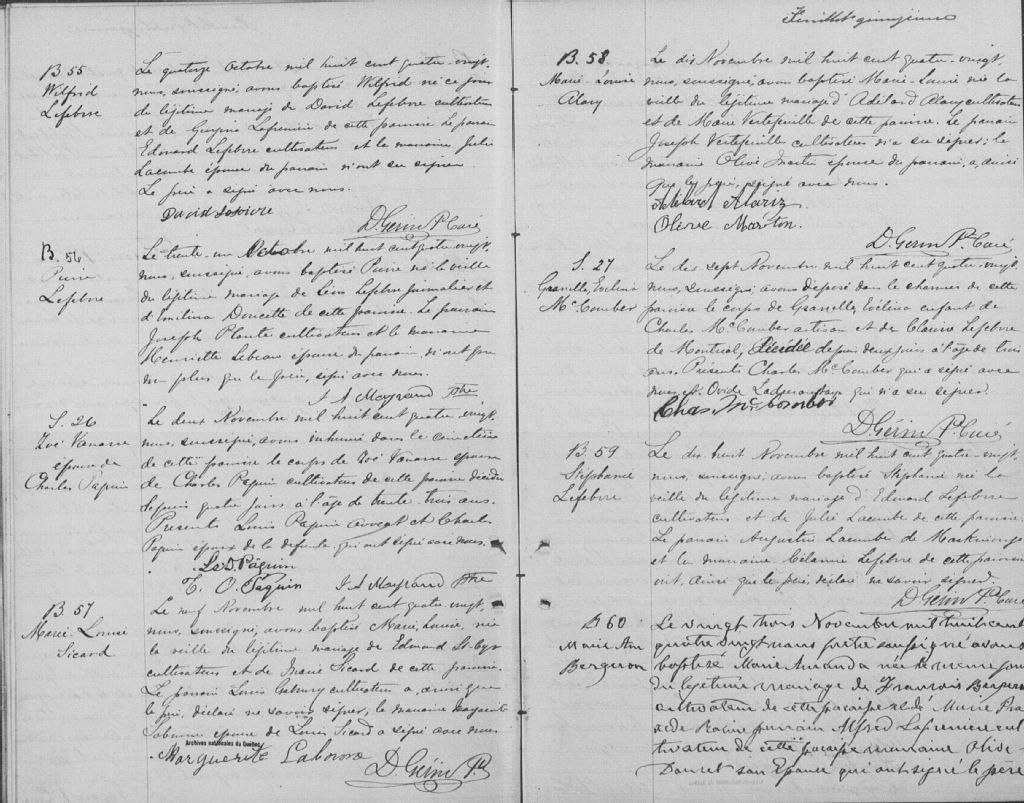 B 55
Wilfrid
Lefebvre
Le quatorze Octobre mil huit cent quatre-vingt,
nous, soussigné, avons baptisé Wilfrid né ce jour
du légitime mariage de David Lefebvre cultivateur
et de Georgina Lafrenière de cette paroisse. Le parrain
Edouard Lefebvre cultivateur et la marraine Julie
Lacombe épouse du parrain n'ont su signer.
Le père a signé avec nous.
David Lefevre
D. Gérin Ptre Curé
B. 56
Pierre
Lefebvre
Le trente-un Octobre mil huit cent quatre-vingt,
nous, soussigné, avons baptisé Pierre né la veille
du légitime mariage de Léon Lefebvre journalier et
d'Emilina Doucette de cette paroisse. Le parrain
Joseph Plante cultivateur et la marraine
Henriette Lebeau épouse du parrain, n'ont pu
non plus que le père, signer avec nous.
J A Mayrand Ptre
S. 26
Zoé Vanasse
épouse de
Charles Paquin
Le deux Novembre mil huit cent quatre-vingt,
nous, soussigné, avons inhumé dans le cimetière
de cette paroisse le corps de Zoé Vanasse épouse
de Charles Paquin cultivateur de cette paroisse décédée
depuis quatre jours à l'âge de trente-trois ans.
Présents Louis Paquin avocat et Charles
Paquin époux de la defunte qui ont signé avec nous.
Ls D. Paquin
T. O. Paquin J. A Mayrand Ptre
B. 57
Marie-Louise
Sicard
Le neuf Novembre mil huit cent quatre-vingt,
nous, soussigné, avons baptisé Marie, Louise, née
la veille du légitime mariage de Edmond St-Cyr
cultivateur et de Marie Sicard de cette paroisse.
Le parrain Louis cultivateur a, ainsi que
le père, déclaré ne savoir signer, la marraine Marguerite
Labonne épouse de Louis Sicard a signé avec nous.
Archives nationales du Québec
Marguerite Labonne
D. Gérin Ptre
Feuillet quinzième
B. 58
Marie-Louise
Alary
Le dix Novembre mil huit cent quatre-vingt,
nous, soussigné, avons baptisé Marie-Louise née la
veille du légitime mariage d'Adélard Alary cultivateur
et de Marie Vertefeuille de cette paroisse. Le parrain
Joseph Vertefeuille cultivateur n'a su signer; la
marraine Olive épouse du parrain, a, ainsi
que le père, signé avec nous.
Adelard Alarie
Olive Marton.
D. Gérin Ptre Curé
S. 27
Granville, Evelina
McComber
Le dix sept Novembre mil huit cent quatre-vingt,
nous, soussigné avons déposé dans le charnier de cette
paroisse le corps de Granville, Evelina enfant de
Charles McComber artisan et de Clarisse Lefebvre
de Montréal, décédée depuis deux jours à l'âge de trois
ans. Présents Charles McComber qui a signé avec
nous et Ovide Ladouceur qui n'a su signer.
Chas McComber
D. Gérin Ptre Curé
B. 59
Stéphanie
Lefebvre
Le dix huit Novembre mil huit cent quatre-vingt,
nous, soussigné, avons baptisé Stéphanie née la
veille du légitime mariage d'Edouard Lefebvre
cultivateur et de Julie Lacombe de cette paroisse.
Le parrain Augustin Lacombe de Maskinongé
et la marraine Lefebvre de cette paroisse
ont, ainsi que le père, déclaré ne savoir signer.
D. Gérin Ptre Curé
B 60
Marie Am
Bergeron
Le vingt trois Novembre mil huit cent
quatre vingt nous prêtre soussigné avons
baptisé Marie Amanda née le même jour
du légitime mariage de François Bergeron
cultivateur de cette paroisse et de Marie Pra
xède Racine parrain Alfred Lafrenière cul
tivateur de cette paroisse marraine Olive
Doucet son Epouse qui ont signé le père